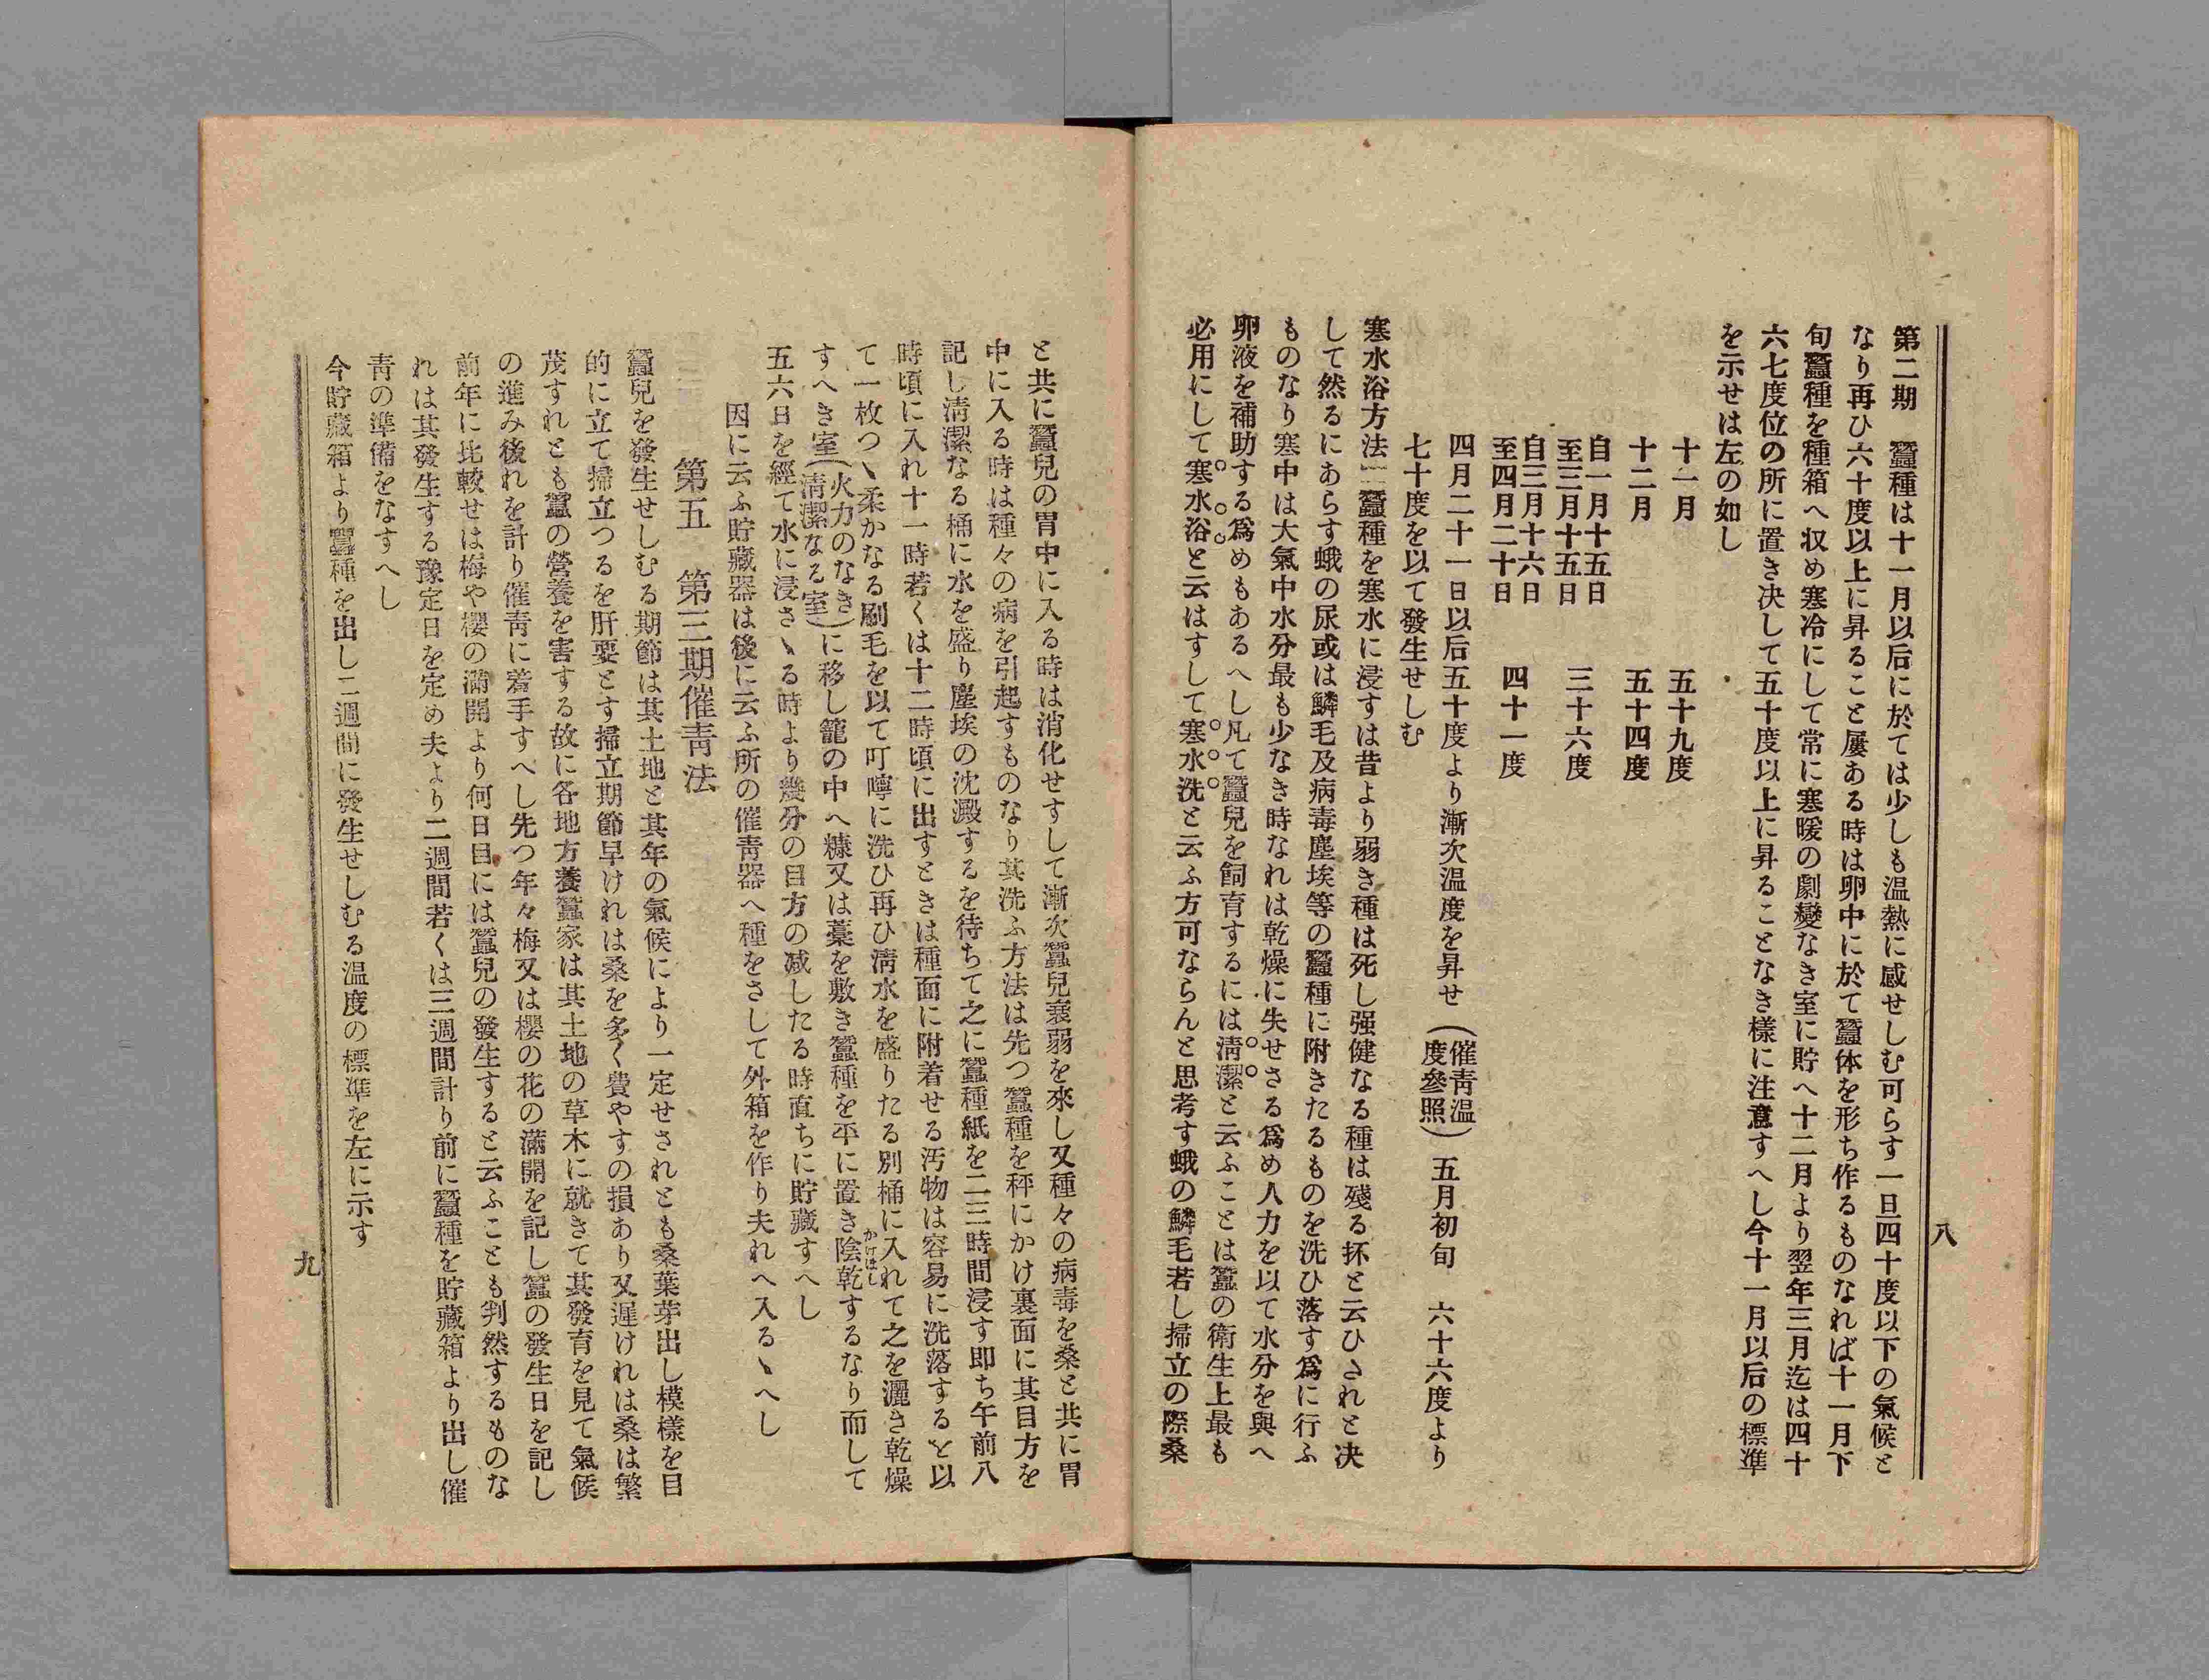 八
第二期　蠶種は十一月以后に於ては少しも温熱に感せしむ可らす一旦四十度以下の氣候と
なり再ひ六十度以上に昇ること屢ある時は卵中に於て蠶体を形ち作るものなれば十一月下
旬蠶種を種箱へ収め寒冷にして常に寒暖の劇變なき室に貯へ十二月より翌年三月迄は四十
六七度位の所に置き决して五十度以上に昇ることなき樣に注意すへし今十一月以后の標準
を示せは左の如し
十一月　五十九度
十二月　五十四度
自一月十五日
至三月十五日　三十六度
自三月十六日
至四月二十日　四十一度
四月二十一日以后五十度より漸次温度を昇せ（催靑温度參照）五月初旬　六十六度より
七十度を以て發生せしむ
寒水浴方法＝蠶種を寒水に浸すは昔より弱き種は死し强健なる種は殘る抔と云ひされと决
して然るにあらす蛾の尿或は鱗毛及病毒塵埃等の蠶種に附きたるものを洗ひ落す爲に行ふ
ものなり寒中は大氣中水分最も少なき時なれは乾燥に失せさる爲め人力を以て水分を與へ
卵液を補助する爲めもあるへし凡て蠶兒を飼育するには淸潔と云ふことは蠶の衛生上最も
必用にして寒水浴と云はすして寒水洗と云ふ方可ならんと思考す蛾の鱗毛若し掃立の際桑
と共に蠶兒の胃中に入る時は消化せすして漸次蠶兒衰弱を來し又種々の病毒を桑と共に胃
中に入る時は種々の病を引起すものなり其洗ふ方法は先つ蠶種を秤にかけ裏面に其目方を
記し淸潔なる桶に水を盛り塵埃の沈澱するを待ちて之に蠶種紙を二三時間浸す即ち午前八
時頃に入れ十一時若くは十二時頃に出すときは種面に附着せる汚物は容易に洗落するを以
て一枚つゝ柔かなる刷毛を以て叮嚀に洗ひ再ひ淸水を盛りたる別桶に入れて之を灑き乾燥
すへき室（火力のなき淸潔なる室）に移し籠の中へ糠又は藁を敷き蠶種を平に置き陰乾かげほしするなり而して
五六日を經て水に浸さゝる時より幾分の目方の减したる時直ちに貯藏すへし
因に云ふ貯藏器は後に云ふ所の催靑器へ種をさして外箱を作り夫れへ入るゝへし
第五　第三期催靑法
蠶兒を發生せしむる期節は其土地と其年の氣候により一定せされとも桑葉芽出し模樣を目
的に立て掃立つるを肝要とす掃立期節早けれは桑を多く費やすの損あり又遲けれは桑は繁
茂すれとも蠶の營養を害する故に各地方養蠶家は其土地の草木に就きて其發育を見て氣候
の進み後れを計り催靑に着手すへし先つ年々梅又は櫻の花の滿開を記し蠶の發生日を記し
前年に比較せは梅や櫻の滿開より何日目には蠶兒の發生すると云ふことも判然するものな
れは其發生する豫定日を定め夫より二週間若くは三週間計り前に蠶種を貯藏箱より出し催
靑の準備をなすへし
今貯藏箱より蠶種を出し二週間に發生せしむる温度の標準を左に示す
九